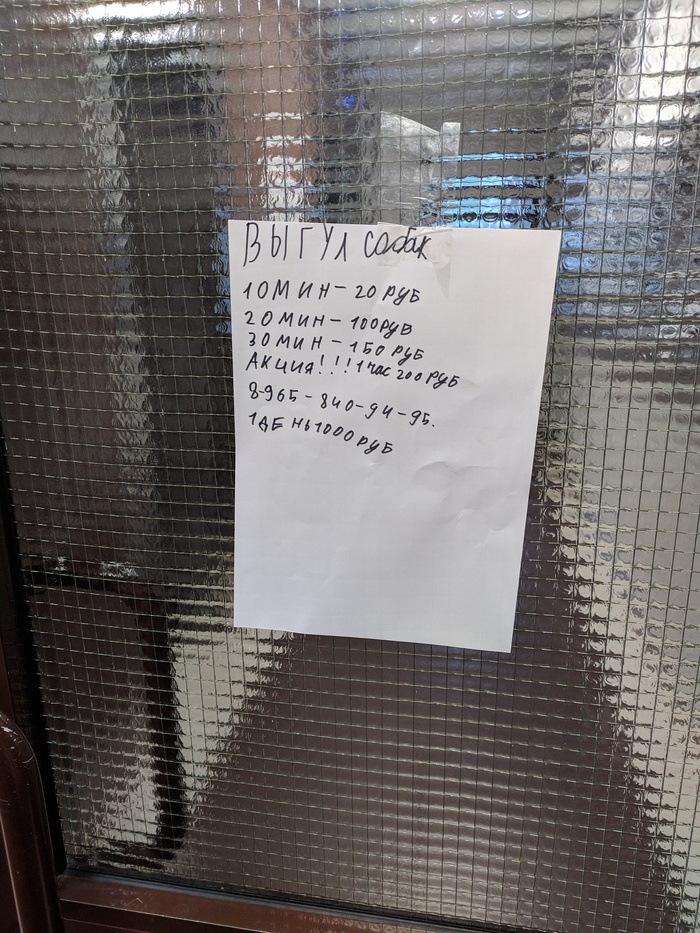 ВЫГУЛ собак
10 МИН - 20 РУБ
20 МИН - 100 РУБ
30 МИН - 150 РУБ
АКЦИЯ!!! 1 час 200 РУБ
8-965-840-94-95.
1 ДЕНЬ 1000 РУБ